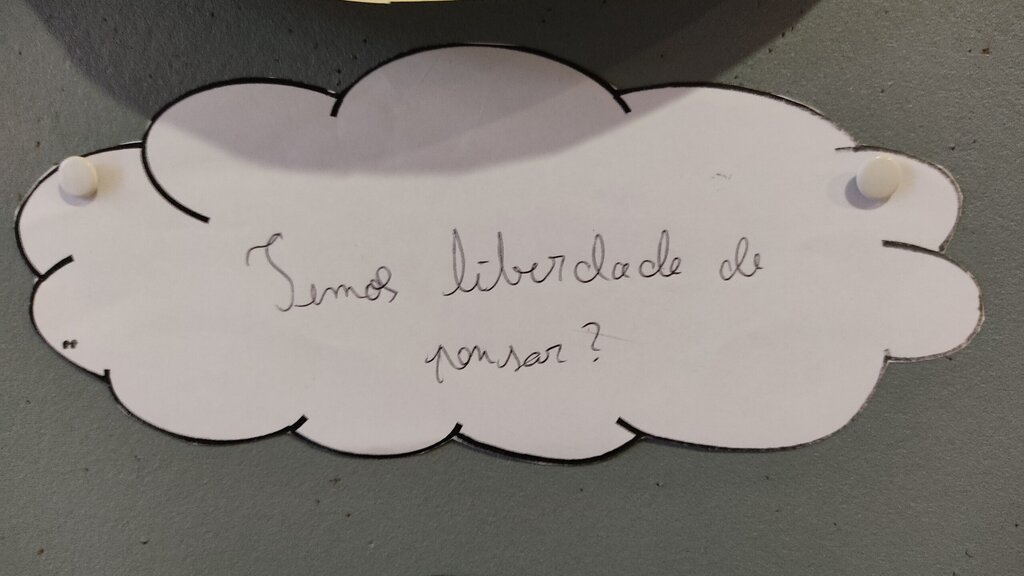 Temos liberdade de
pensar?